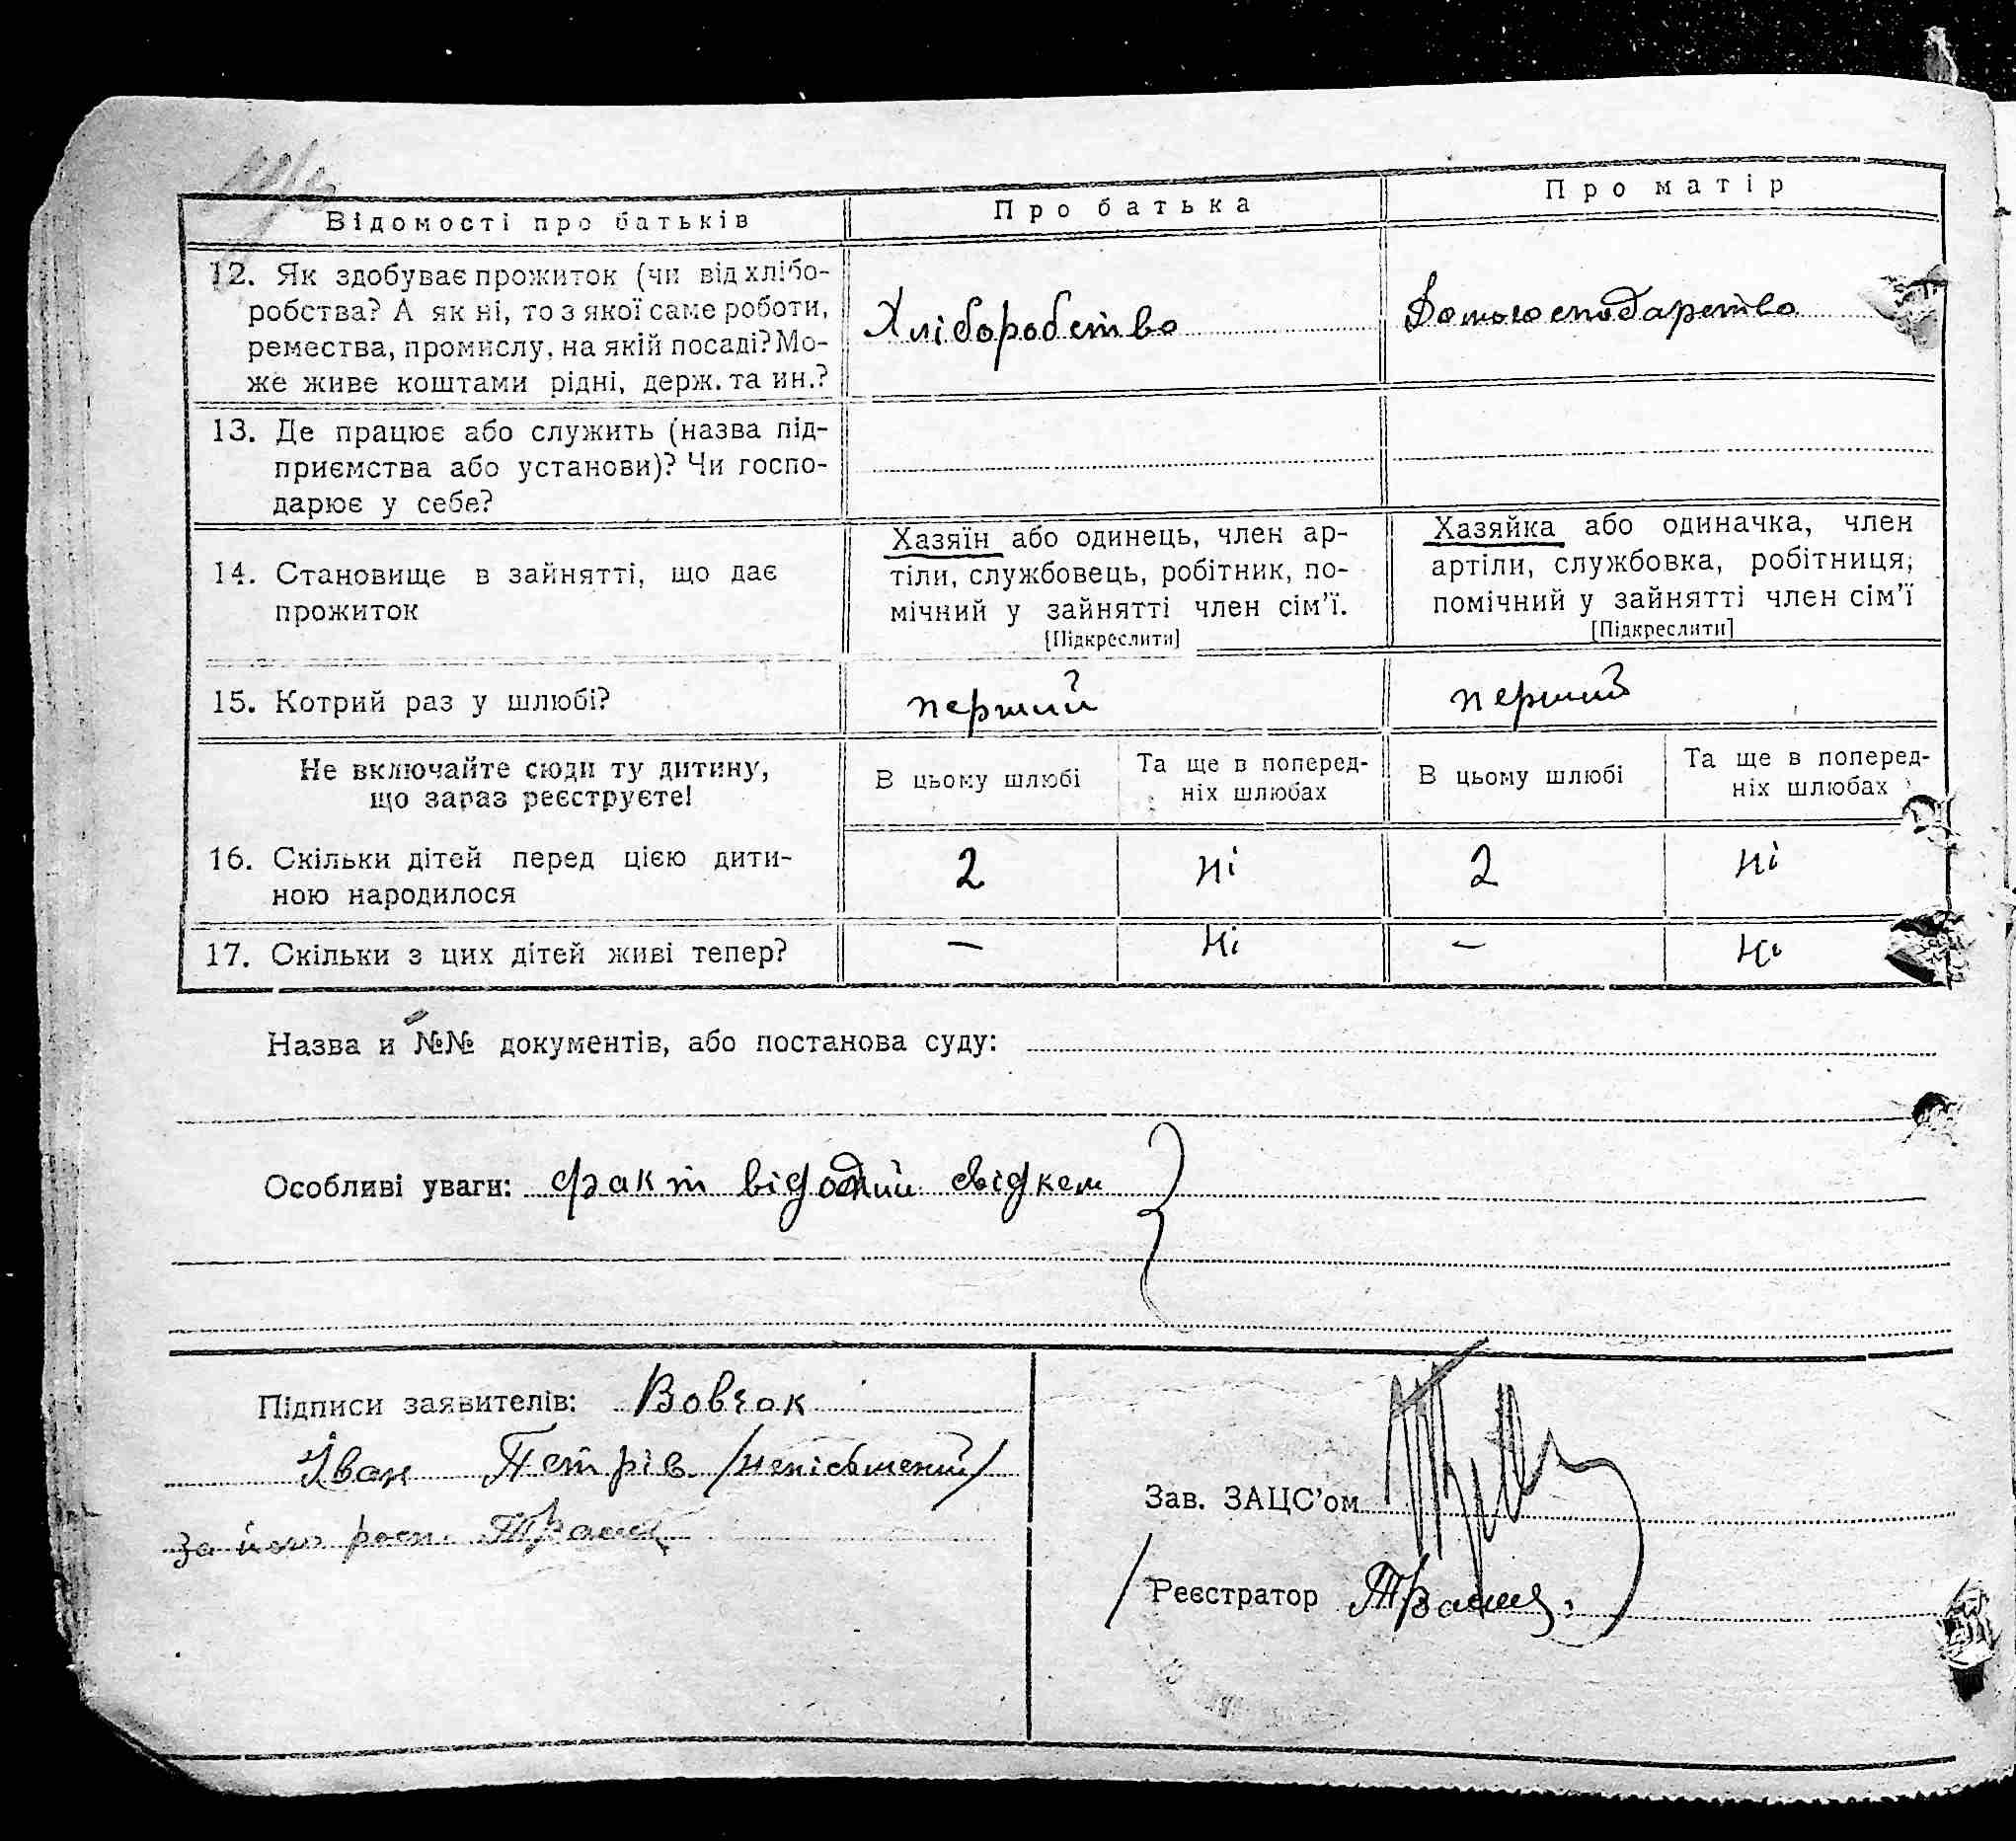 Відомості про батьків
Про батька
Про матір
12. Як здобуває прожиток (чи від хлібо-
робства? А як ні, то з якої саме роботи,
ремества, промислу, на якій посаді? Мо-
же живе коштами рідні, держ. та ин.?
Хліборобство
Домогосподарство
13. Де працює або служить (назва під-
приємства або установи)? Чи госпо-
дарює у себе?
14. Становище в зайнятті, що дає
прожиток
Хазяїн або одинець, член ар-
тіли, службовець, робітник, по-
мічний у зайнятті член сім'ї.
[Підкреслити]
Хазяйка або одиначка, член
артіли, службовка, робітниця;
помічний у зайнятті член сім'ї
[Підкреслити]
15. Котрий раз у шлюбі?
перший
перший
Не включайте сюди ту дитину,
що зараз реєструєте!
В цьому шлюбі
Та ще в поперед-
ніх шлюбах
В цьому шлюбі
Та ще в поперед-
ніх шлюбах
16. Скільки дітей перед цією дити-
ною народилося
2
ні
2
ні
17. Скільки з цих дітей живі тепер?
—
ні
—
ні
Назва и №№ документів, або постанова суду:
Особливі уваги: факт відомий свідкам
Підписи заявителів: Вовчок
Іван Петрів /неписьмений/
За його росп.
Зав. ЗАЦС'ом
/Реєстратор